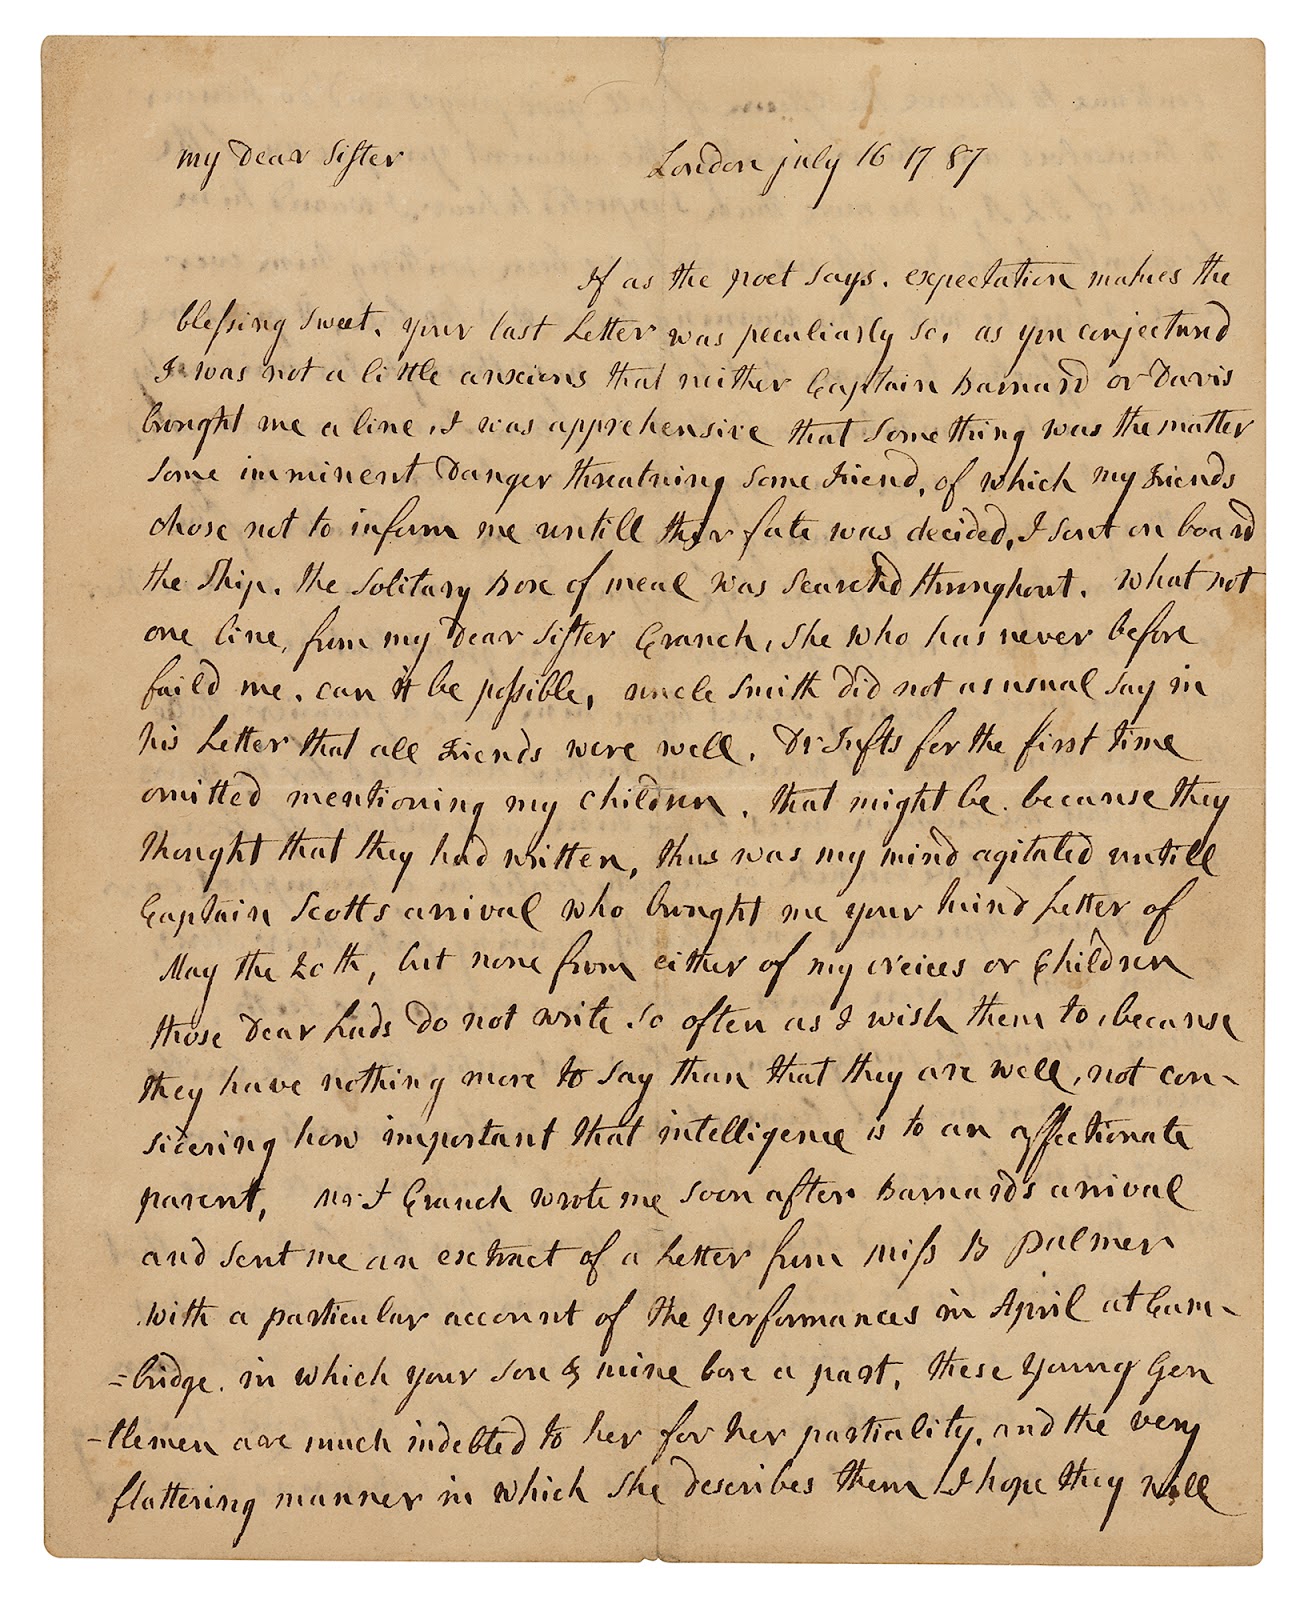 my Dear Sister London july 16 1787
If as the poet says. expectation makes the
blessing sweet. your last Letter was peculiarly so, as you conjecturd
I was not a little anxious that neither Captain Barnard or Davis
brought me a line, I was apprehensive that something was the matter
some imminent Danger threatning some Friend, of which my Friends
chose not to inform me untill their fate was decided, I sent on board
the Ship. the Solitary Box of meal was searchd throughout. what not
one line, from my Dear Sister Cranch, she who has never before
faild me. can it be possible, uncle Smith did not as usual say in
his Letter that all Friends were well. Dr Tufts for the first time
omitted mentioning my children. that might be. because they
thought that they had written, thus was my mind agitated untill
Captain Scotts arrival who brought me your kind Letter of
May the 20th, but none from either of my Neices or Children
those Dear Lads do not write so often as I wish them to, because
they have nothing more to say than that they are well, not con-
sidering how important that intelligence is to an affectionate
parent, mr J Cranch wrote me soon after Barnards arrival
and sent me an extract of a Letter from miss B Palmer
with a particular account of the performances in April at Cam-
=bridge. in which your son & mine bore a part, these young Gen
-tlemen are much indebted to her for her partiality, and the very
flattering manner in which she describes them I hope they will